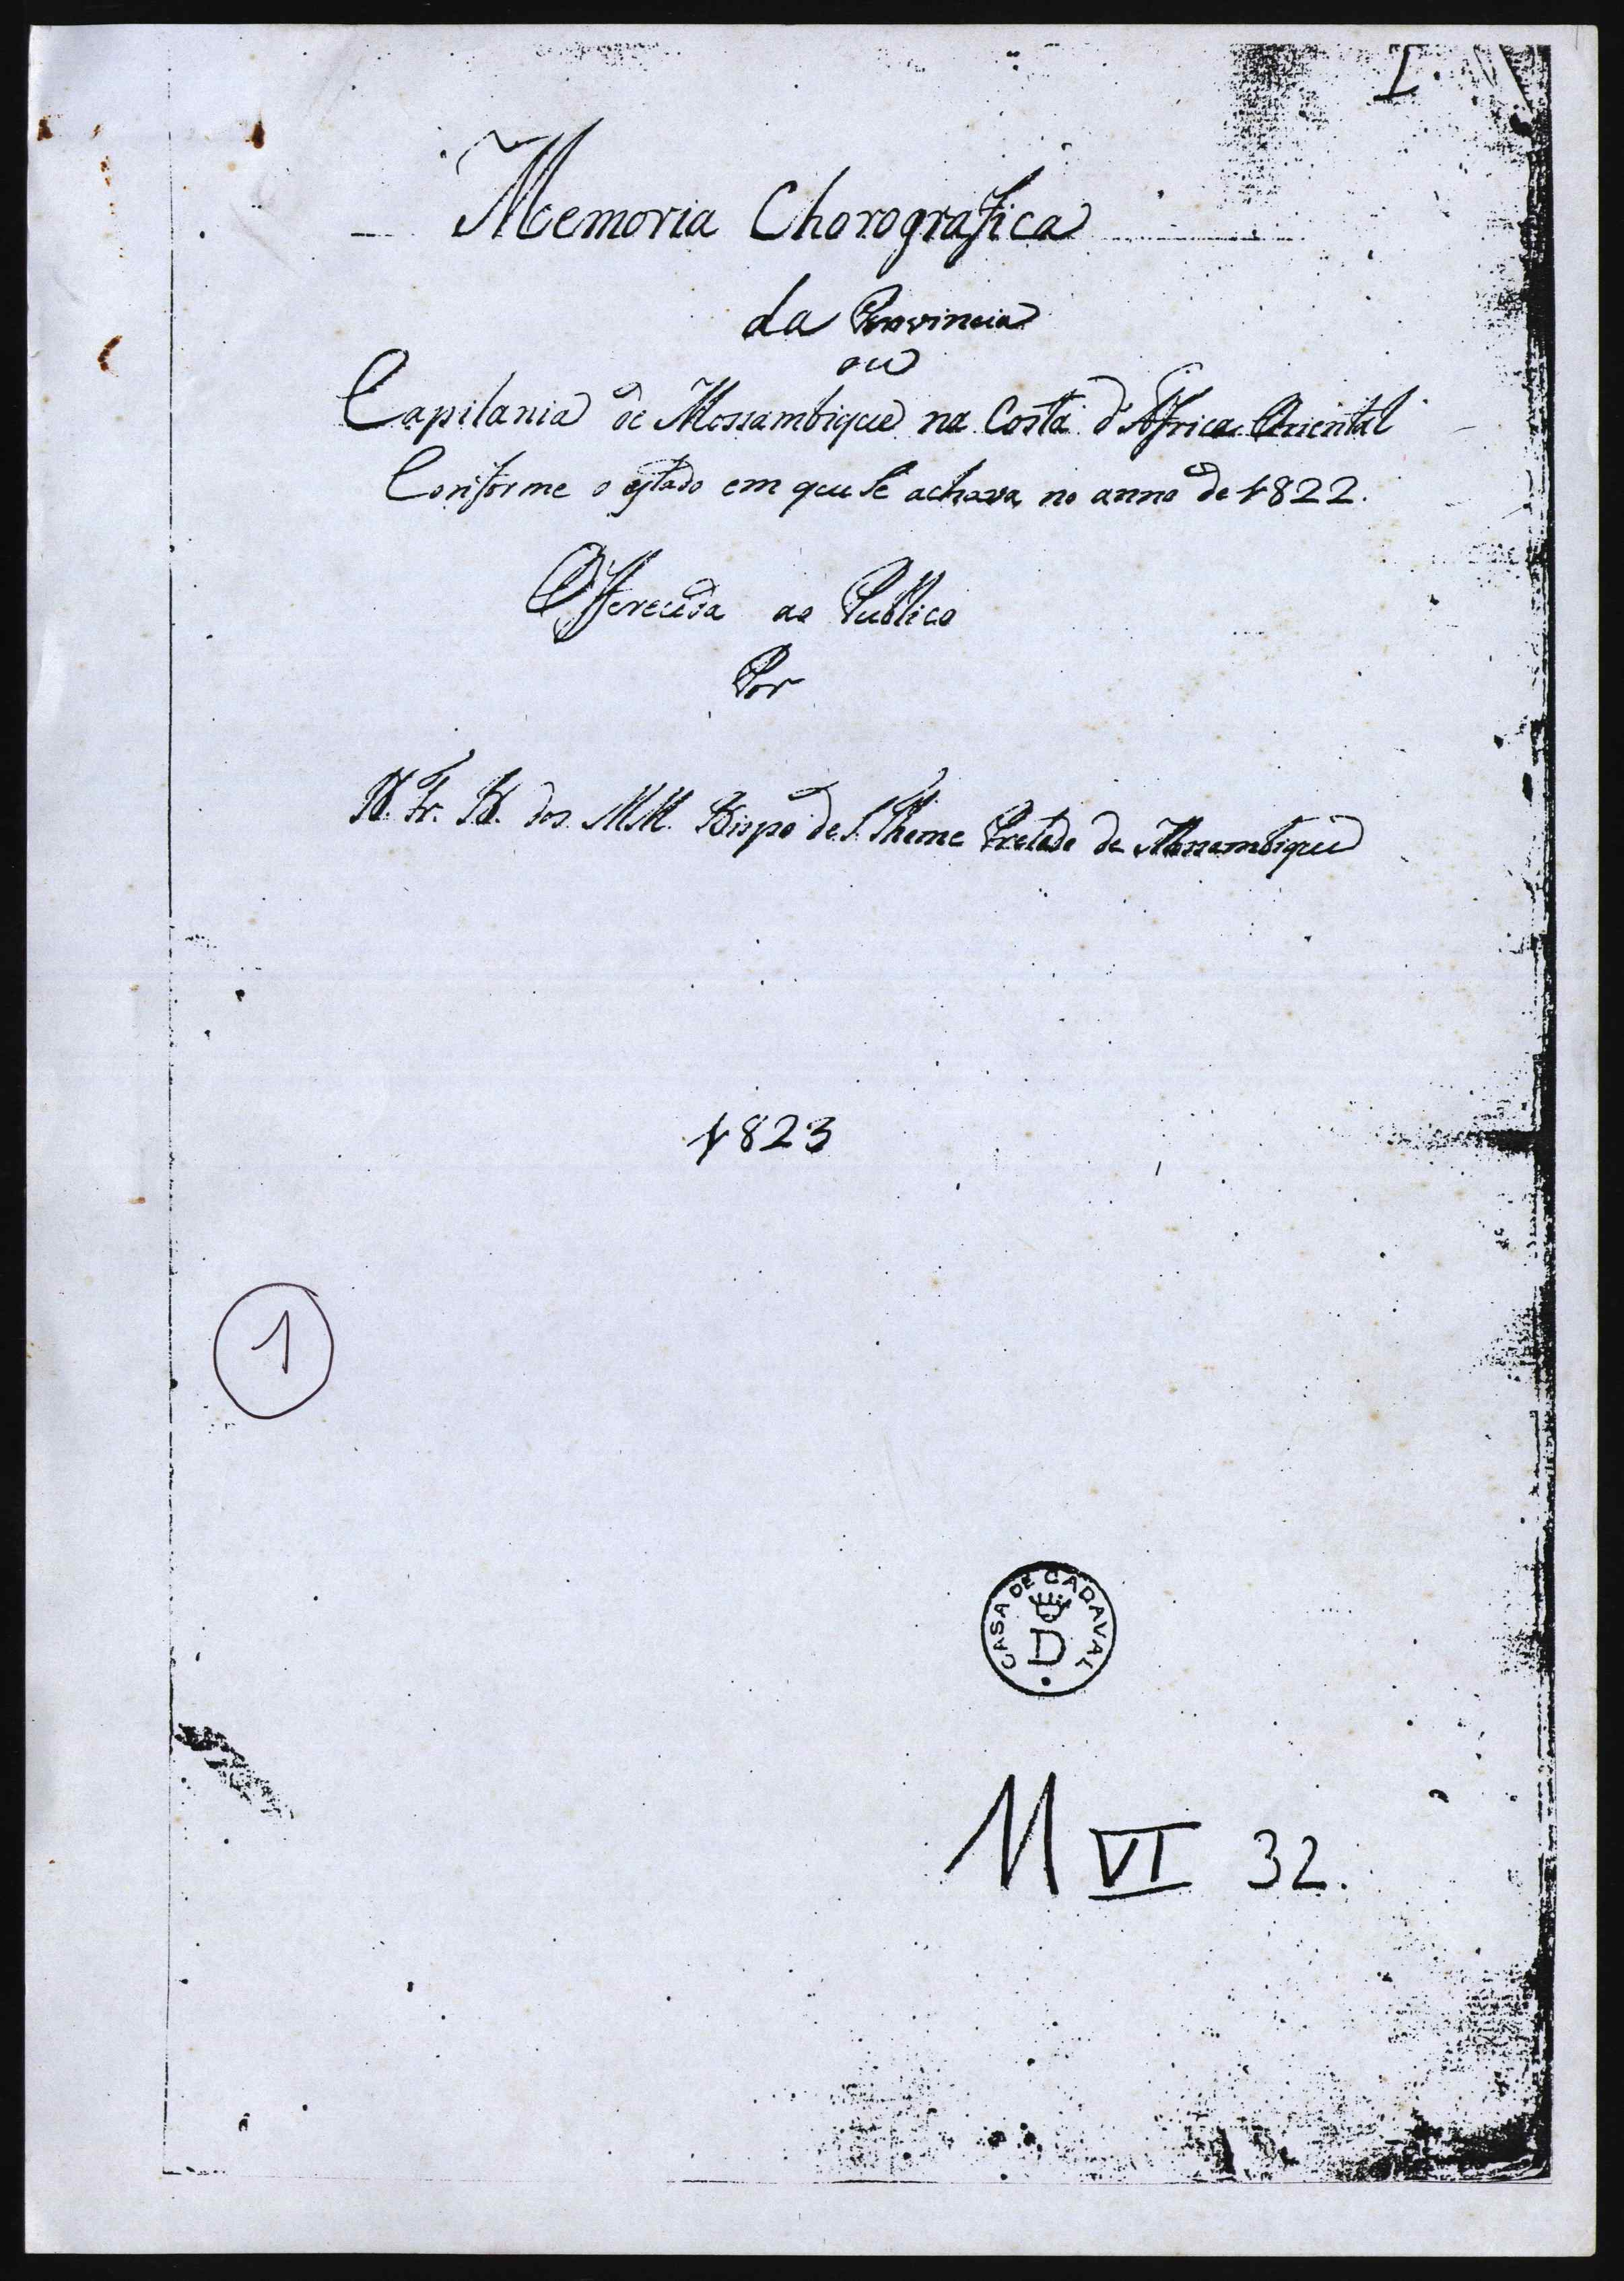 1.
Memoria Chorografica
da Provincia
ou
Capitania de Mossambique na Costa d'Africa Oriental
Conforme o estado em que se achava no anno de 1822.
Offerecida ao Publico
Por
Fr. B. dos MM. Bispo de S. Thome Prelado de Mossambique
1823
1
CASA DE CADAVAL
D
M VI 32.